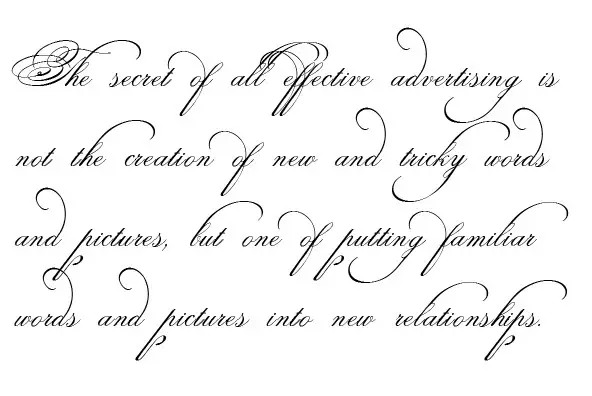 The secret of all effective advertising is
not the creation of new and tricky words
and pictures, but one of putting familiar
words and pictures into new relationships.